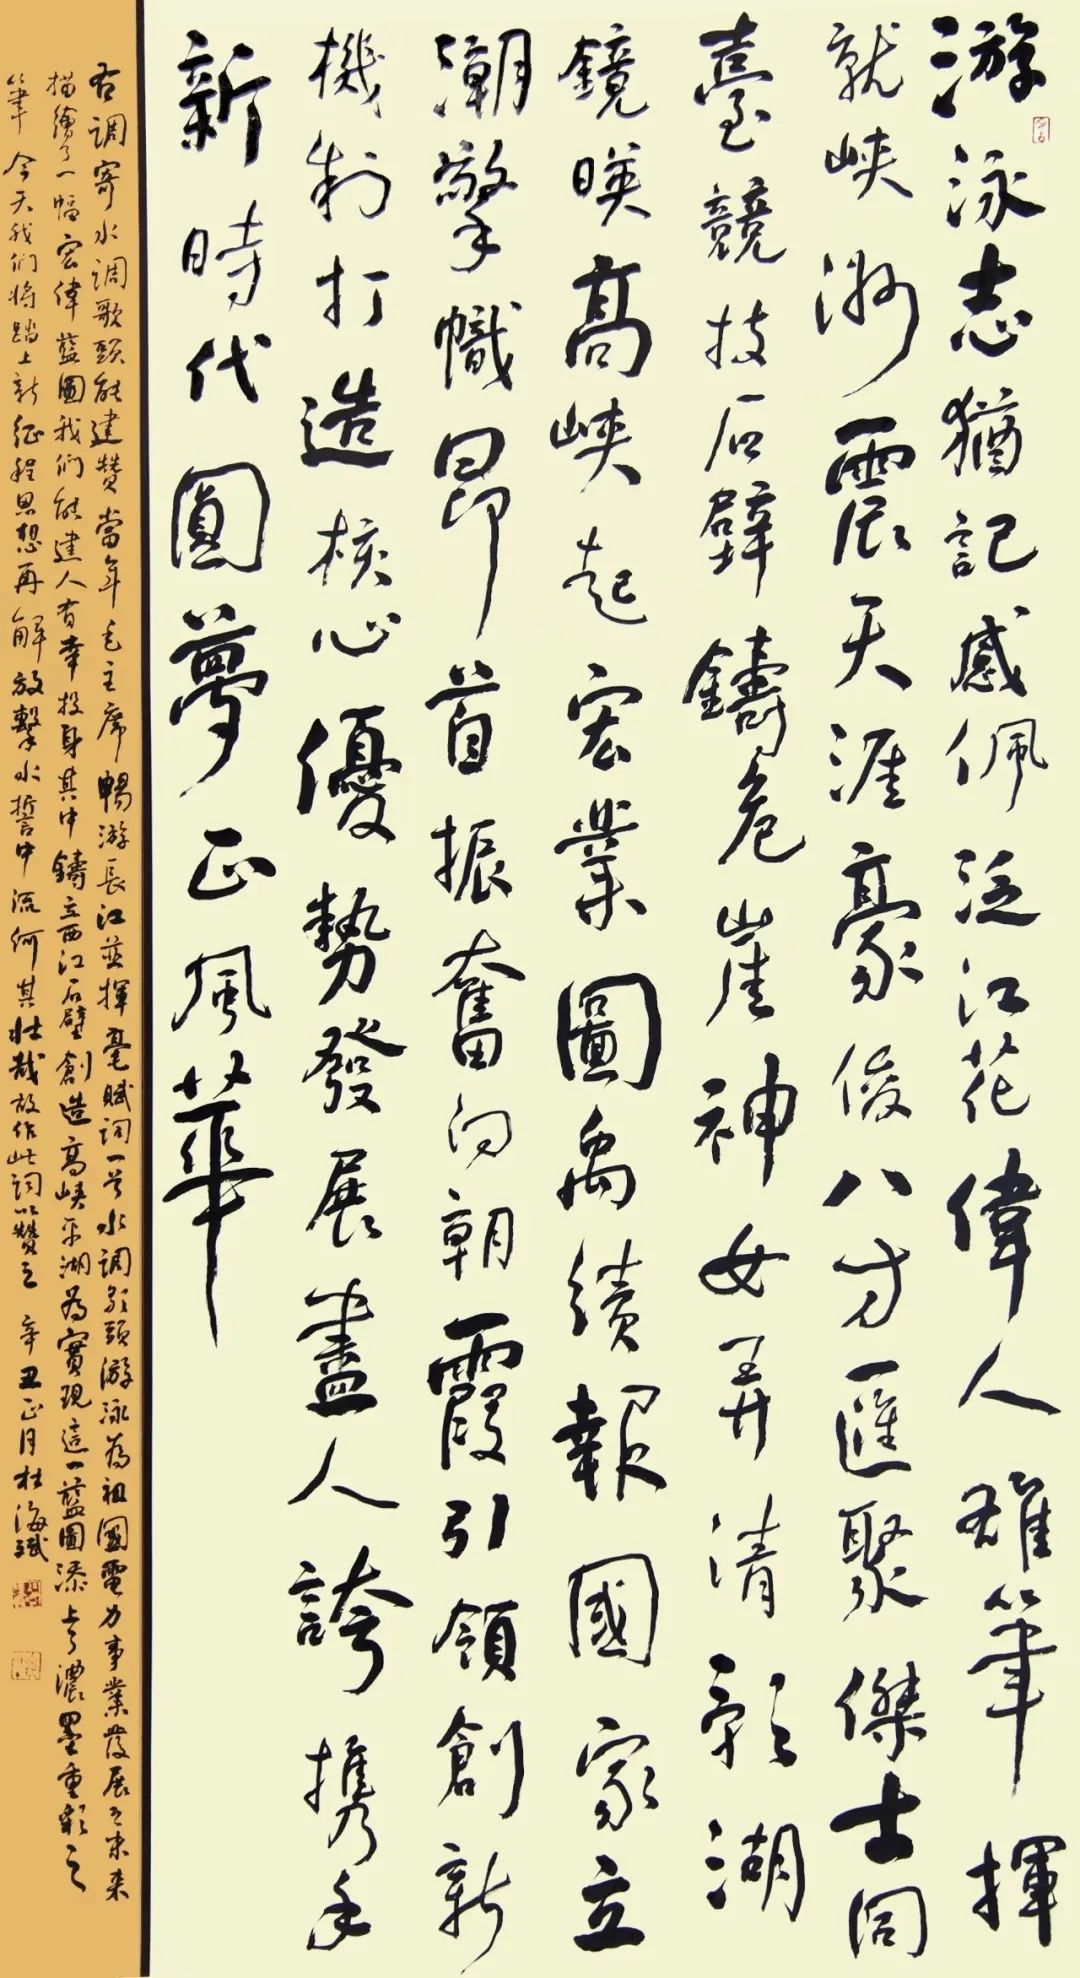 游泳志猶記感佩泛江花偉人雄筆揮
就峽洲震天涯豪俊八方匯聚傑士同
臺競技石壁鑄危崖神女弄清影湖
鏡映高峽起宏業圖禹績報國家立
潮擎幟昂首振奮向朝霞引領創新
機制打造核心優勢發展盡人誇携手
新時代圓夢正風華
右調寄水調歌頭能建贊當年毛主席暢游長江並揮毫賦詞一首水調歌頭游泳為祖國電力事業發展之未來
描繪了一幅宏偉藍圖我們能建人有幸投身其中鑄立西江石壁創造高峽平湖為實現這一藍圖添上了濃墨重彩之
筆今天我們將踏上新征程思想再解放擊水誓中流何其壯哉故作此詞以贊之辛丑正月杜海斌